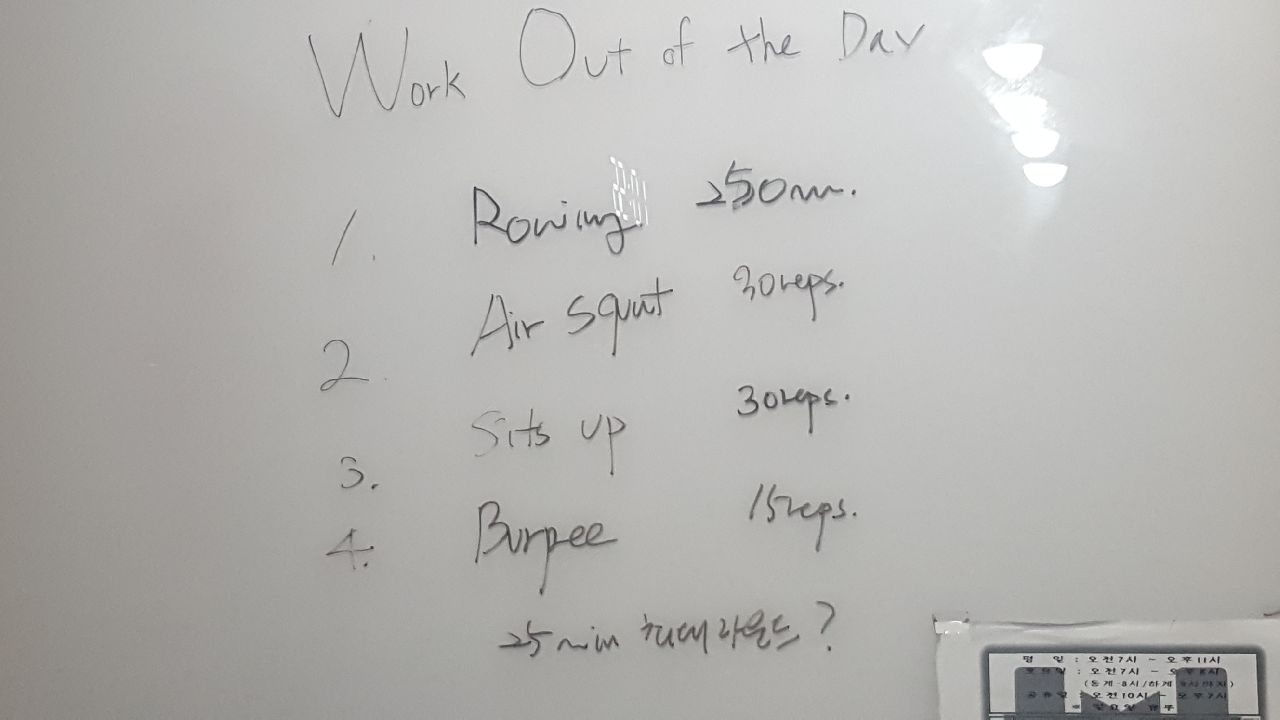 Work Out of the Day
1. Rowing 250m.
2. Air squat 30reps.
3. Sits up 30reps.
4. Burpee 15reps.
25min 최대라운드?
평 일 : 오전7시 ~ 오후11시
토요일 : 오전7시 ~ 오후8시
(동계-8시/하계 9시까지)
공휴일 : 오전10시 ~ 오후7시
* 일요일 휴무